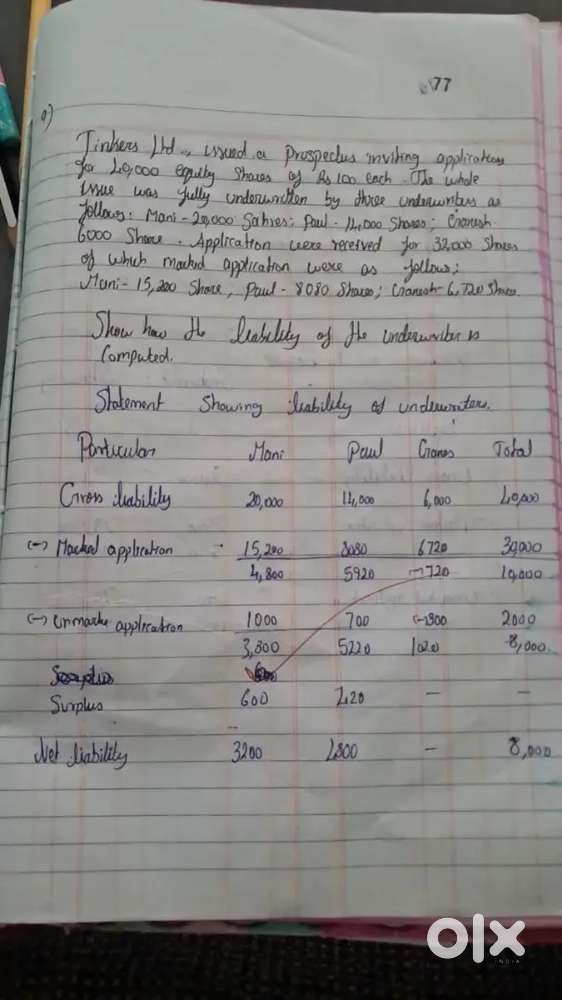 77
Q)
Tinkers Ltd., issued a Prospectus inviting applications
for 40,000 equity Shares of Rs 100 each. The whole
issue was fully underwritten by three underwriters as
follows: Mani - 20,000 Sahres; Paul - 14,000 Shares; Ganesh -
6000 Share. Application were received for 32,000 Shares
of which marked application were as follow;
Mani - 15,200 Share, Paul - 8080 Shares; Ganesh - 6,720 Share.
Show how the liability of the underwriter is
Computed.
Statement Showing liability of underwriters.
Particular Mani Paul Ganes Total
Gross liability 20,000 14,000 6,000 40,000
(-) Marked application 15,200 8080 6720 30,000
4,800 5920 -720 10,000
(-) Unmarke application 1000 700 (-)300 2000
3,800 5220 1020 8,000
Surplus 600 420 - -
Net liability 3200 4800 - 8,000
olx
INDIA